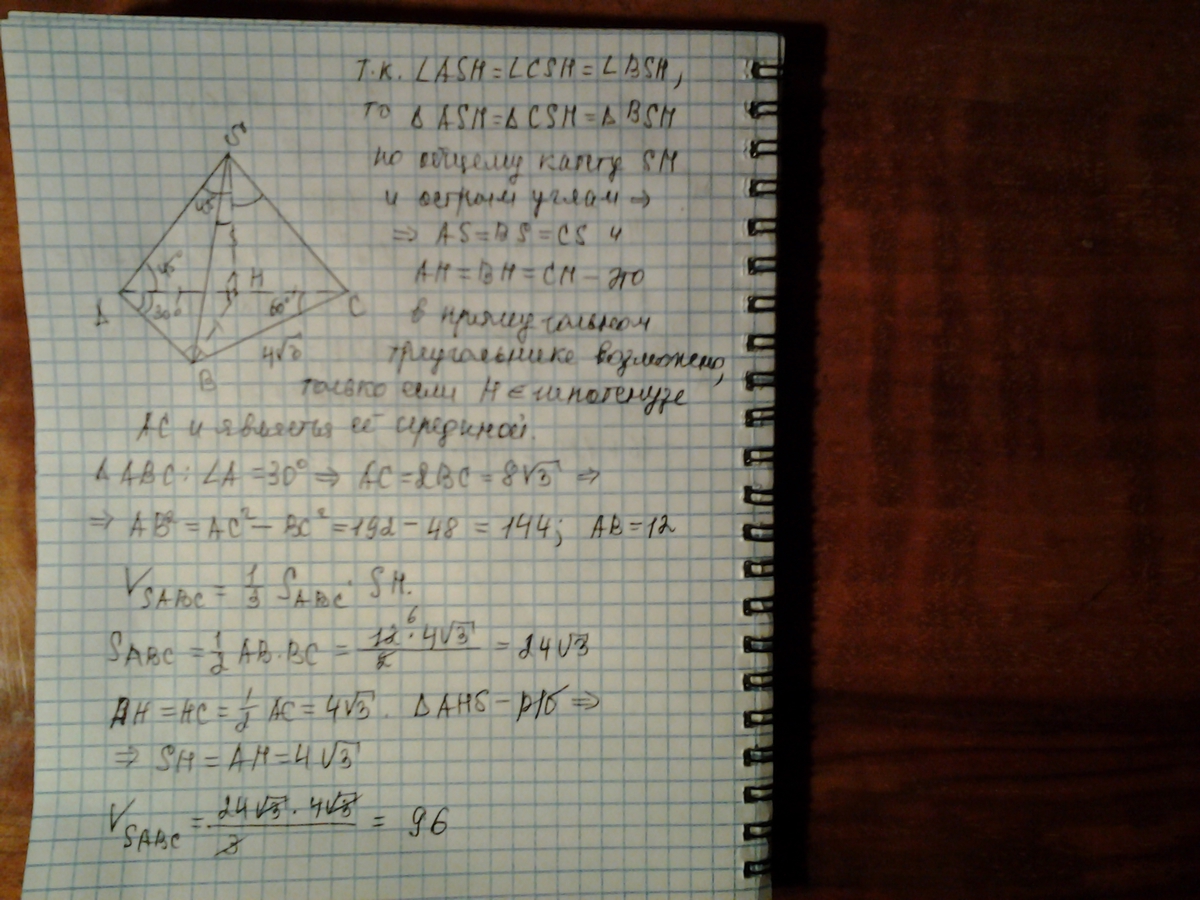 т.к. ∠ASH = ∠CSH = ∠BSH,
то Δ ASH = Δ CSH = Δ BSH
по общему катету SH
и острым углам ⇒
⇒ AS = BS = CS и
AH = BH = CH – это
в прямоугольном
треугольнике возможно,
только если H ∈ гипотенузе
AC и является её серединой.
S
45°
45°
H
A
30°
60°
C
4√3
B
Δ ABC: ∠A = 30° ⇒ AC = 2BC = 8√3 ⇒
⇒ AB² = AC² – BC² = 192 – 48 = 144; AB = 12
V_SABC = 1/3 S_ABC · SH.
S_ABC = 1/2 AB · BC = 12 · 4√3 / 2 6 = 24√3
AH = HC = 1/2 AC = 4√3. Δ AHS – р/б ⇒
⇒ SH = AH = 4√3
V_SABC = 24√3 · 4√3 / 3 = 96